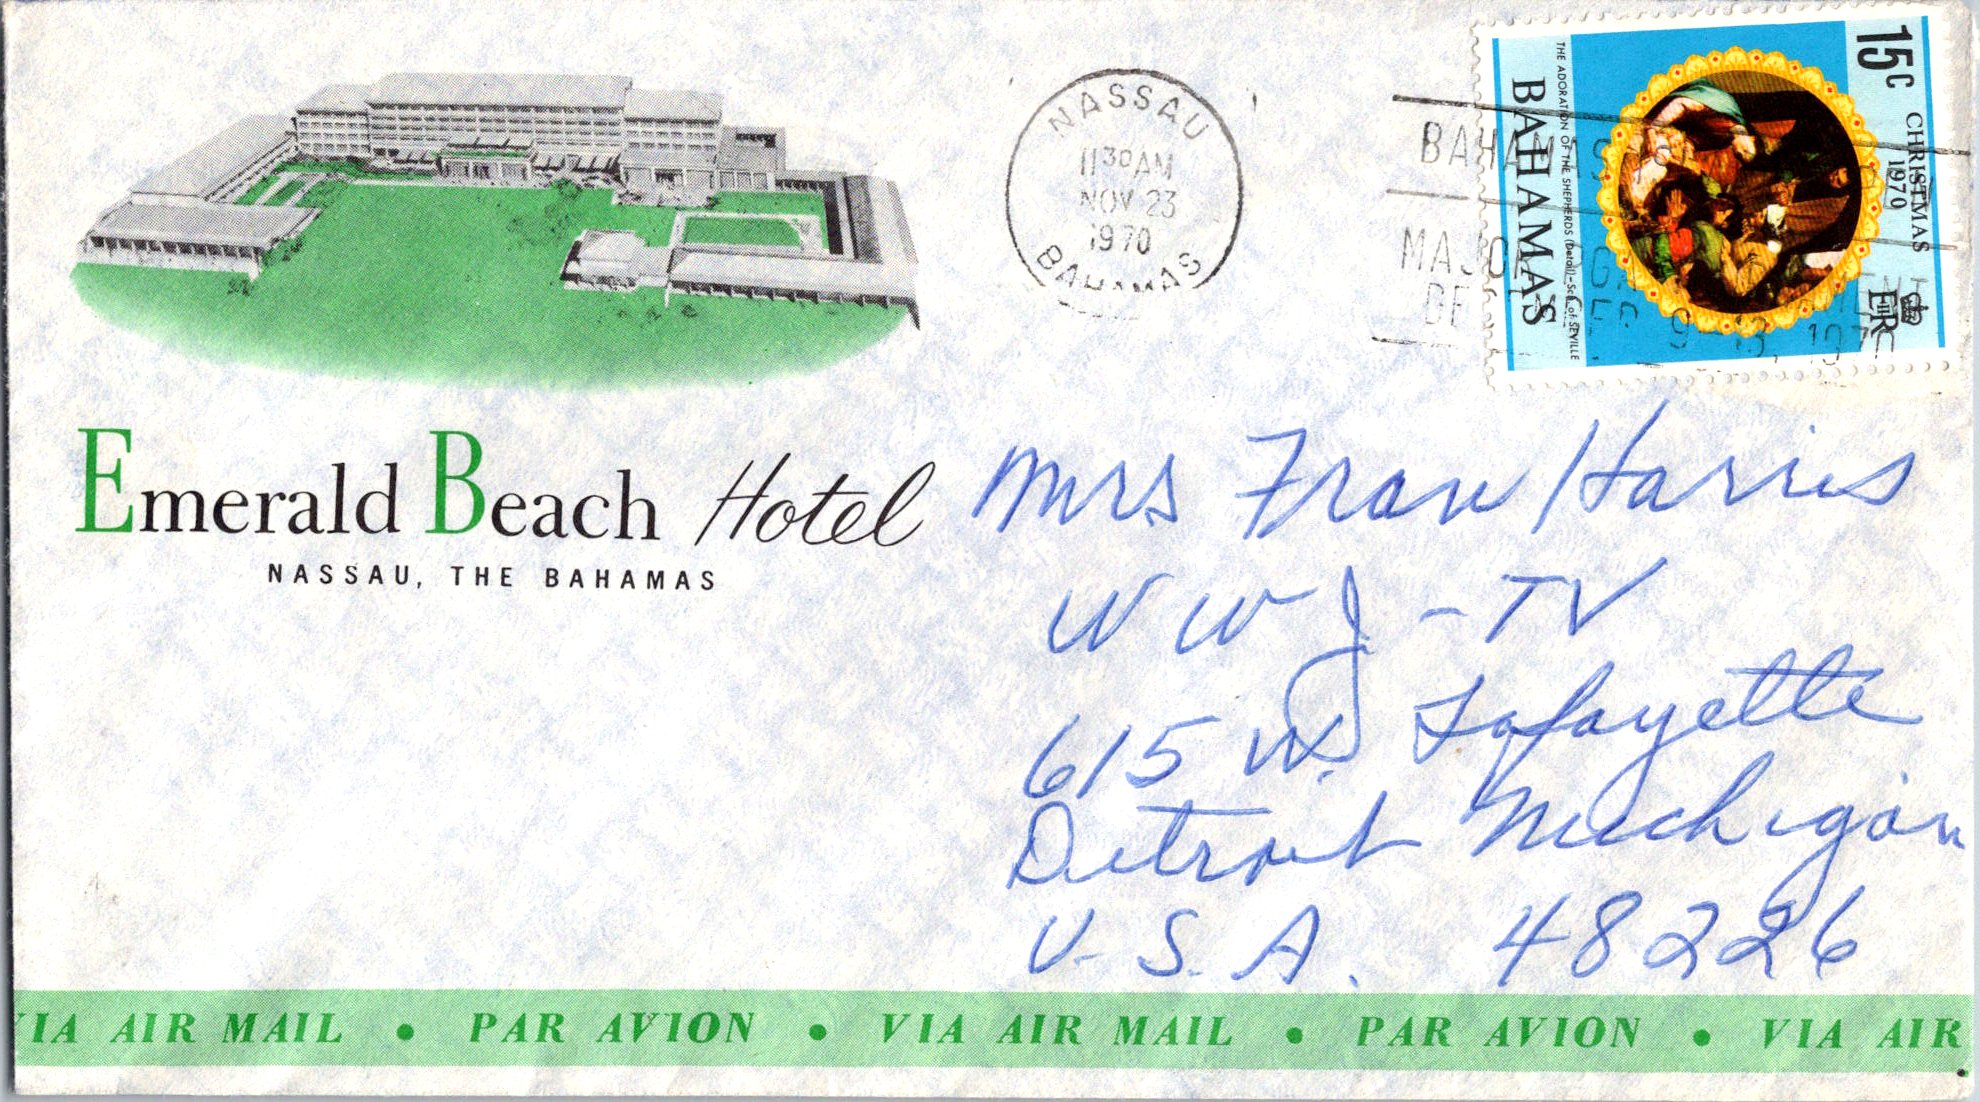 NASSAU
11 30 AM
NOV 23
1970
BAHAMAS
15c
CHRISTMAS
1970
EIIR
THE ADORATION OF THE SHEPHERDS (Detail)-School of SEVILLE
BAHAMAS
Emerald Beach Hotel
NASSAU, THE BAHAMAS
Mrs Fran Harris
WWJ-TV
615 W. Lafayette
Detroit Michigan
U.S.A. 48226
VIA AIR MAIL • PAR AVION • VIA AIR MAIL • PAR AVION • VIA AIR